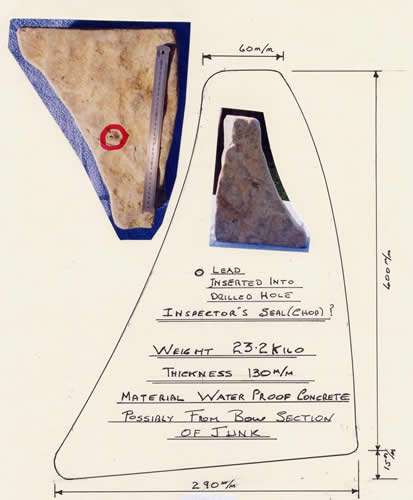 60m/m
600m/m
O LEAD
INSERTED INTO
DRILLED HOLE
INSPECTOR'S SEAL (CHOP) ?
WEIGHT 23.2 KILO
THICKNESS 130m/m
MATERIAL WATER PROOF CONCRETE
POSSIBLY FROM BOW SECTION
OF JUNK
15m/m
290m/m